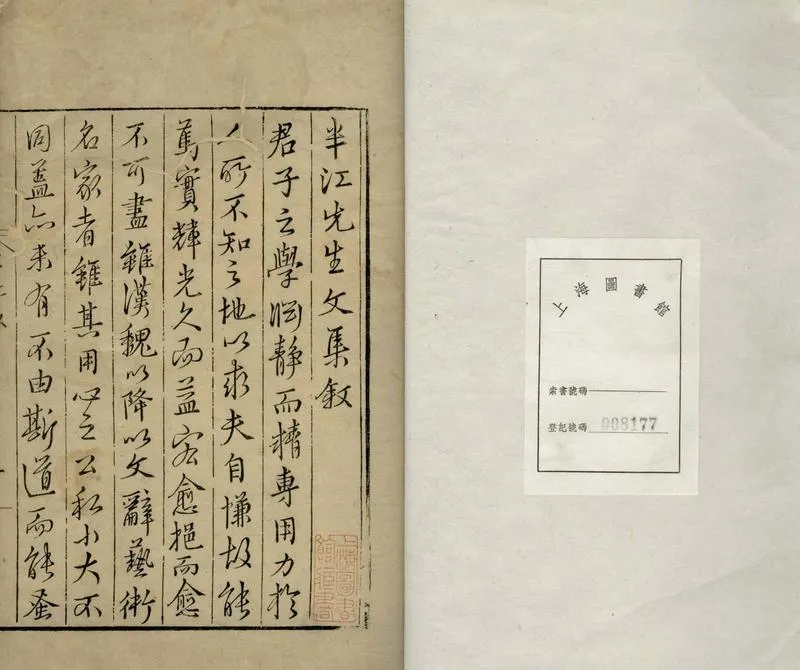 上海圖書館
索書號碼
登記號碼 008177
半江先生文集敘
君子之學淵靜而精專用力於
人所不知之地以求夫自慊故能
篤實輝光久而益宏愈挹而愈
不可盡雖漢魏以降以文辭藝術
名家者雖其用心之公私小大不
同蓋亦未有不由斯道而能蚤
上海圖書館藏書